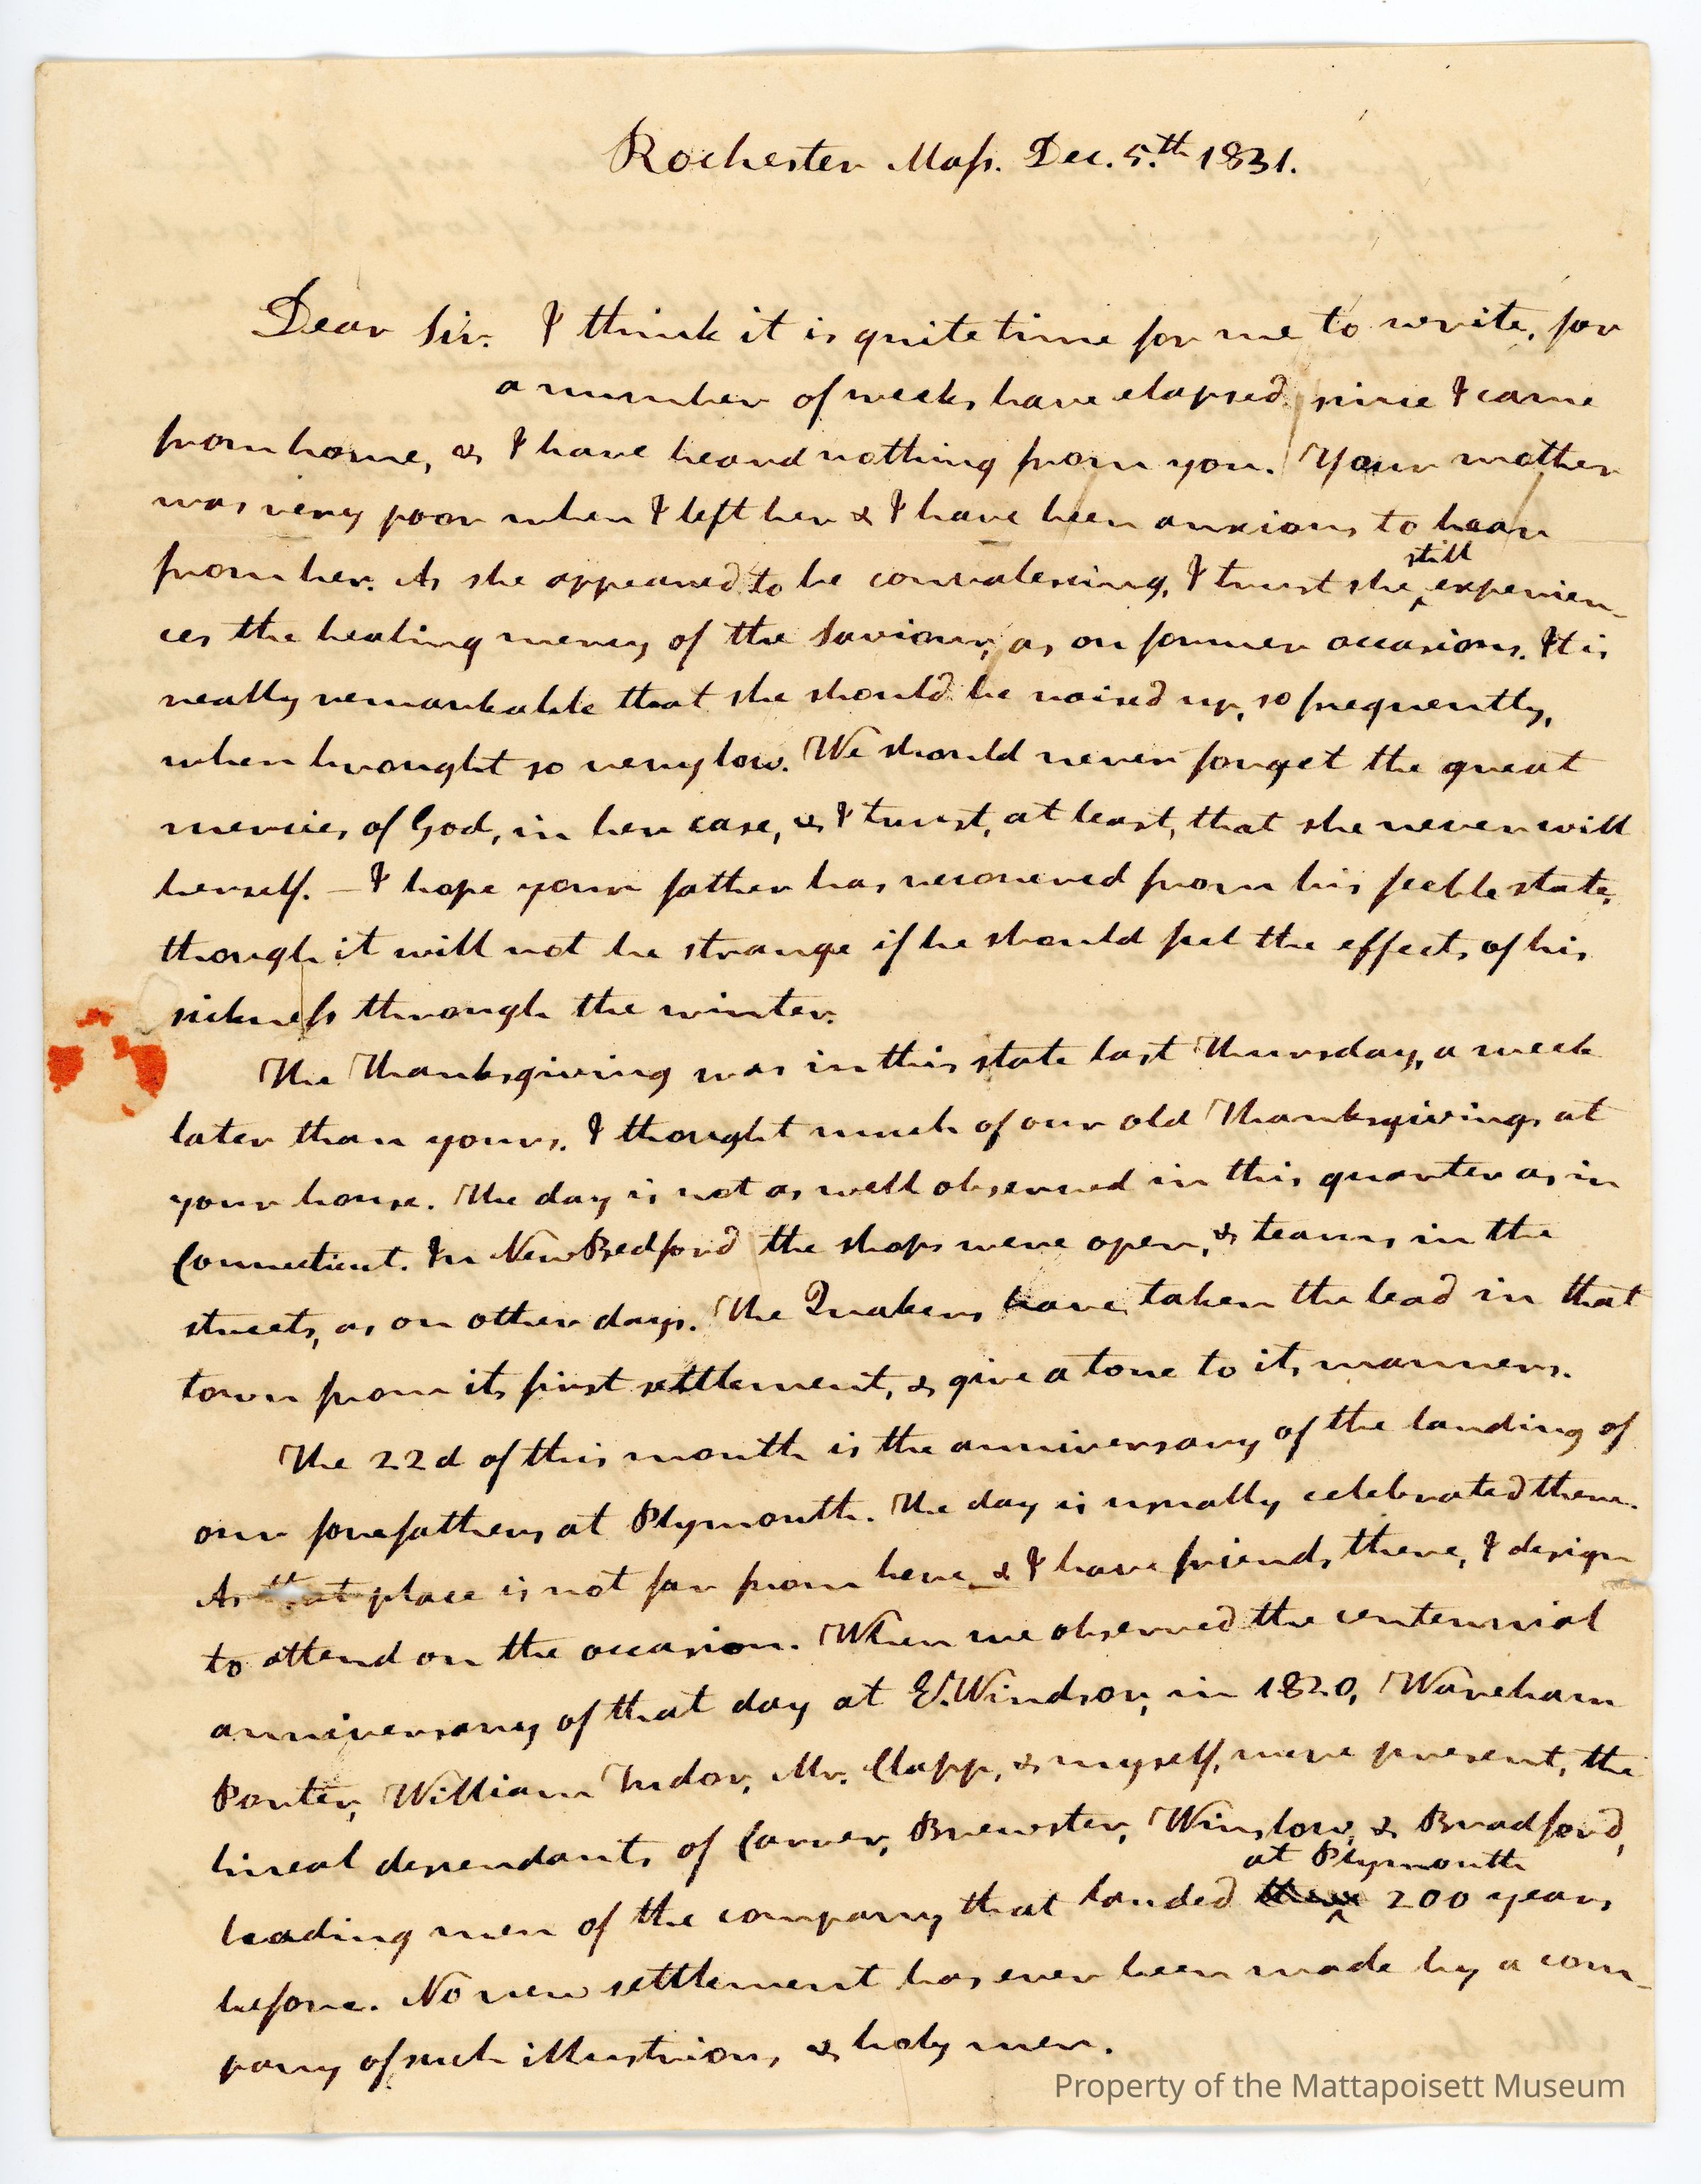 Rochester Mass. Dec. 5.th 1831.
Dear Sir. I think it is quite time for me to write, for
a number of weeks have elapsed since I came
from home, & I have heard nothing from you. Your mother
was very poor when I left her & I have been anxious to hear
from her. As she appeared to be convalescing, I trust she still experien-
ces the healing mercy of the Saviour, as on former occasions. It is
really remarkable that she should be raised up, so frequently,
when brought so very low. We should never forget the great
mercies of God, in her case, & I trust, at least, that she never will
herself. — I hope your father has recovered from his feeble state,
though it will not be strange if he should feel the effects of his
sickness through the winter.
The Thanksgiving was in this state last Thursday, a week
later than yours. I thought much of our old Thanksgivings at
your house. The day is not as well observed in this quarter as in
Connecticut. In New Bedford the shops were open, & teams in the
streets, as on other days. The Quakers have taken the lead in that
town from its first settlement, & give a tone to its manners.
The 22d of this month is the anniversary of the landing of
our forefathers at Plymouth. The day is usually celebrated there.
As that place is not far from here & I have friends there, I design
to attend on the occasion. When we observed the centennial
anniversary of that day at E. Windsor, in 1820, Wareham
Porter, William Tudor, Mr. Clapp, & myself, were present, the
lineal descendants of Carver, Brewster, Winslow, & Bradford,
leading men of the company that landed there at Plymouth 200 years
before. No new settlement has ever been made by a com-
pany of such illustrious & holy men.
Property of the Mattapoisett Museum